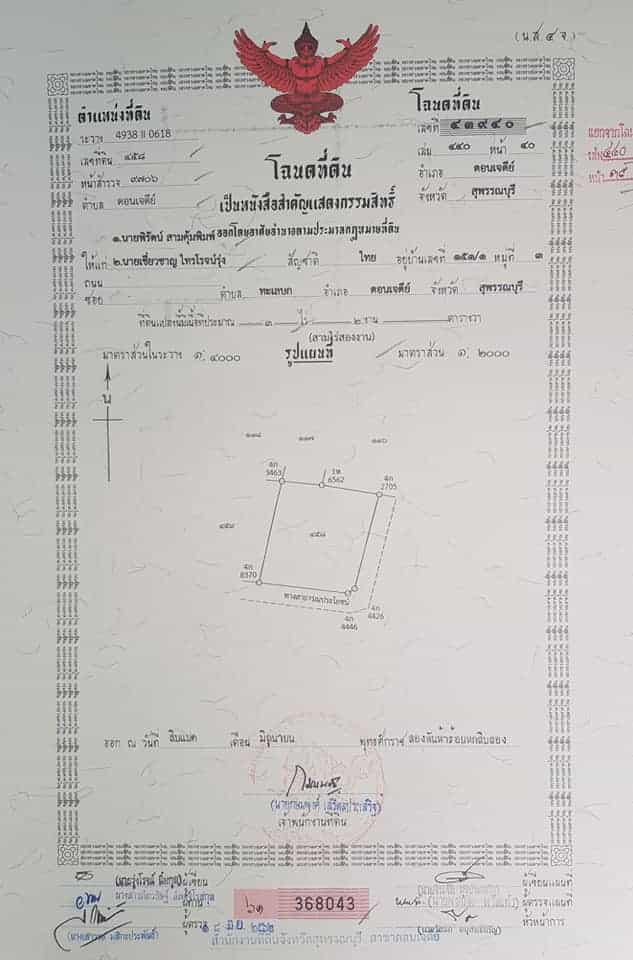 (น.ส.๔ จ.)
ตำแหน่งที่ดิน
ระวาง 4938 II 0618
เลขที่ดิน ๔๕๘
หน้าสำรวจ ๙๗๐๖
ตำบล ดอนเจดีย์
โฉนดที่ดิน
เลขที่ ๔๓๙๔๐
เล่ม ๔๔๐ หน้า ๔๐
อำเภอ ดอนเจดีย์
จังหวัด สุพรรณบุรี
แยกจากโฉน
เล่ม ๔๔๐
หน้า ๓๙
โฉนดที่ดิน
เป็นหนังสือสำคัญแสดงกรรมสิทธิ์
ออกโดยอาศัยอำนาจตามประมวลกฎหมายที่ดิน
๑.นายพิรัตน์ สามคุ้มพิมพ์
ให้แก่ ๒.นายเชี่ยวชาญ ไทรโรจน์รุ่ง สัญชาติ ไทย อยู่บ้านเลขที่ ๑๕๑/๑ หมู่ที่ ๓
ถนน
ซอย ตำบล ทะเลบก อำเภอ ดอนเจดีย์ จังหวัด สุพรรณบุรี
ที่ดินแปลงนี้มีเนื้อที่ประมาณ ๓ ไร่ ๒ งาน ตารางวา
(สามไร่สองงาน)
มาตราส่วนในระวาง ๑:๔๐๐๐ รูปแผนที่ มาตราส่วน ๑:๒๐๐๐
น
๑๑๗
4ก 3463
1ห 6562
4ก 2705
๔๕๘
4ก 8370
ทางสาธารณประโยชน์
4ก 4446
4ก 4426
ออก ณ วันที่ สิบแปด เดือน มิถุนายน พุทธศักราช สองพันห้าร้อยหกสิบสอง
เจ้าพนักงานที่ดิน
ผู้เขียน
ผู้ทาน
ผู้ตรวจ
ผู้เขียนแผนที่
ผู้ตรวจแผนที่
หัวหน้าการ
๖๑ 368043
๑๘ มิ.ย. ๒๕๖๒
สำนักงานที่ดินจังหวัดสุพรรณบุรี สาขาดอนเจดีย์